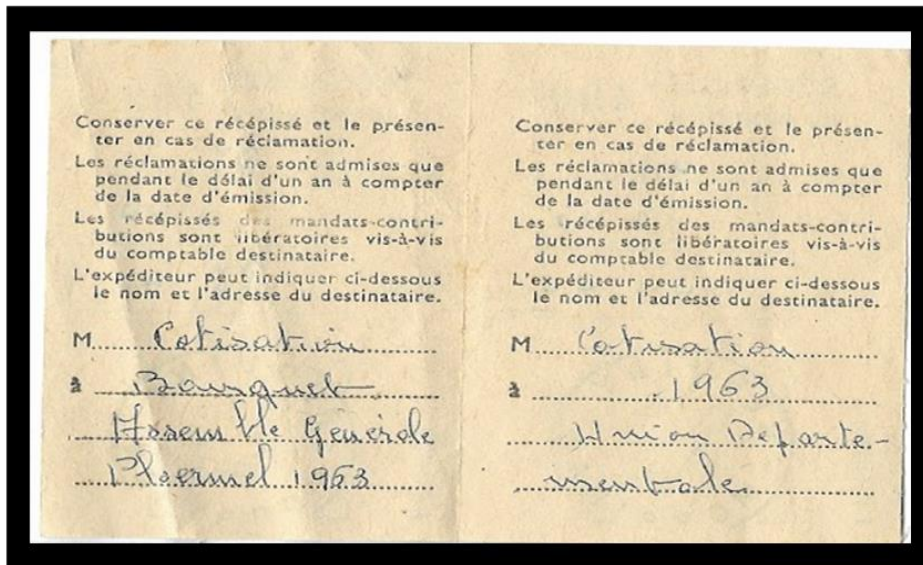 Conserver ce récépissé et le présen-
ter en cas de réclamation.
Les réclamations ne sont admises que
pendant le délai d'un an à compter
de la date d'émission.
Les récépissés des mandats-contri-
butions sont libératoires vis-à-vis
du comptable destinataire.
L'expéditeur peut indiquer ci-dessous
le nom et l'adresse du destinataire.
M Cotisation
à Banquet
Assemblée Générale
Ploermel 1963
Conserver ce récépissé et le présen-
ter en cas de réclamation.
Les réclamations ne sont admises que
pendant le délai d'un an à compter
de la date d'émission.
Les récépissés des mandats-contri-
butions sont libératoires vis-à-vis
du comptable destinataire.
L'expéditeur peut indiquer ci-dessous
le nom et l'adresse du destinataire.
M Cotisation
à 1963
Union Départe-
mentale